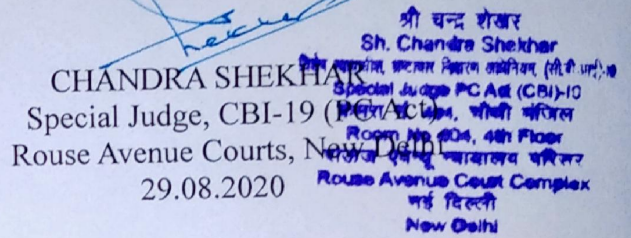 CHANDRA SHEKHAR
Special Judge, CBI-19 (PC Act)
Rouse Avenue Courts, New Delhi
29.08.2020
श्री चन्द्र शेखर
Sh. Chandra Shekhar
Special Judge PC Act (CBI)-10
चौथी मंजिल
Room No 404, 4th Floor
न्यायालय परिसर
Rouse Avenue Court Complex
नई दिल्ली
New Delhi